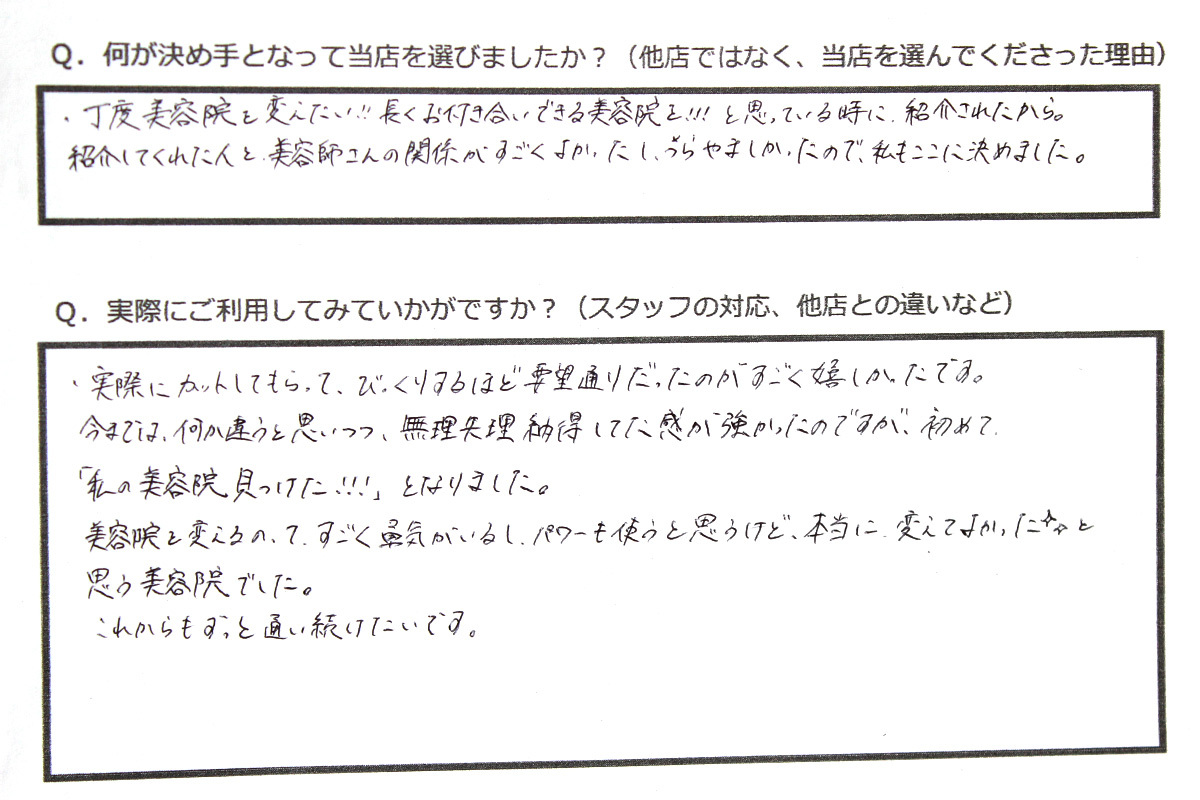 Q．何が決め手となって当店を選びましたか？（他店ではなく、当店を選んでくださった理由）
・丁度美容院を変えたい!! 長くお付き合いできる美容院を!!! と思っている時に、紹介されたから。
紹介してくれた人と、美容師さんの関係がすごくよかったし、うらやましかったので、私もここに決めました。
Q．実際にご利用してみていかがですか？（スタッフの対応、他店との違いなど）
・実際にカットしてもらって、びっくりするほど要望通りだったのがすごく嬉しかったです。
今までは、何か違うと思いつつ、無理矢理納得してた感が強かったのですが、初めて、
「私の美容院見つけた!!!」となりました。
美容院を変えるのって、すごく勇気がいるし、パワーも使うと思うけど、本当に、変えてよかった☆☆と
思う美容院でした。
これからもずっと通い続けたいです。